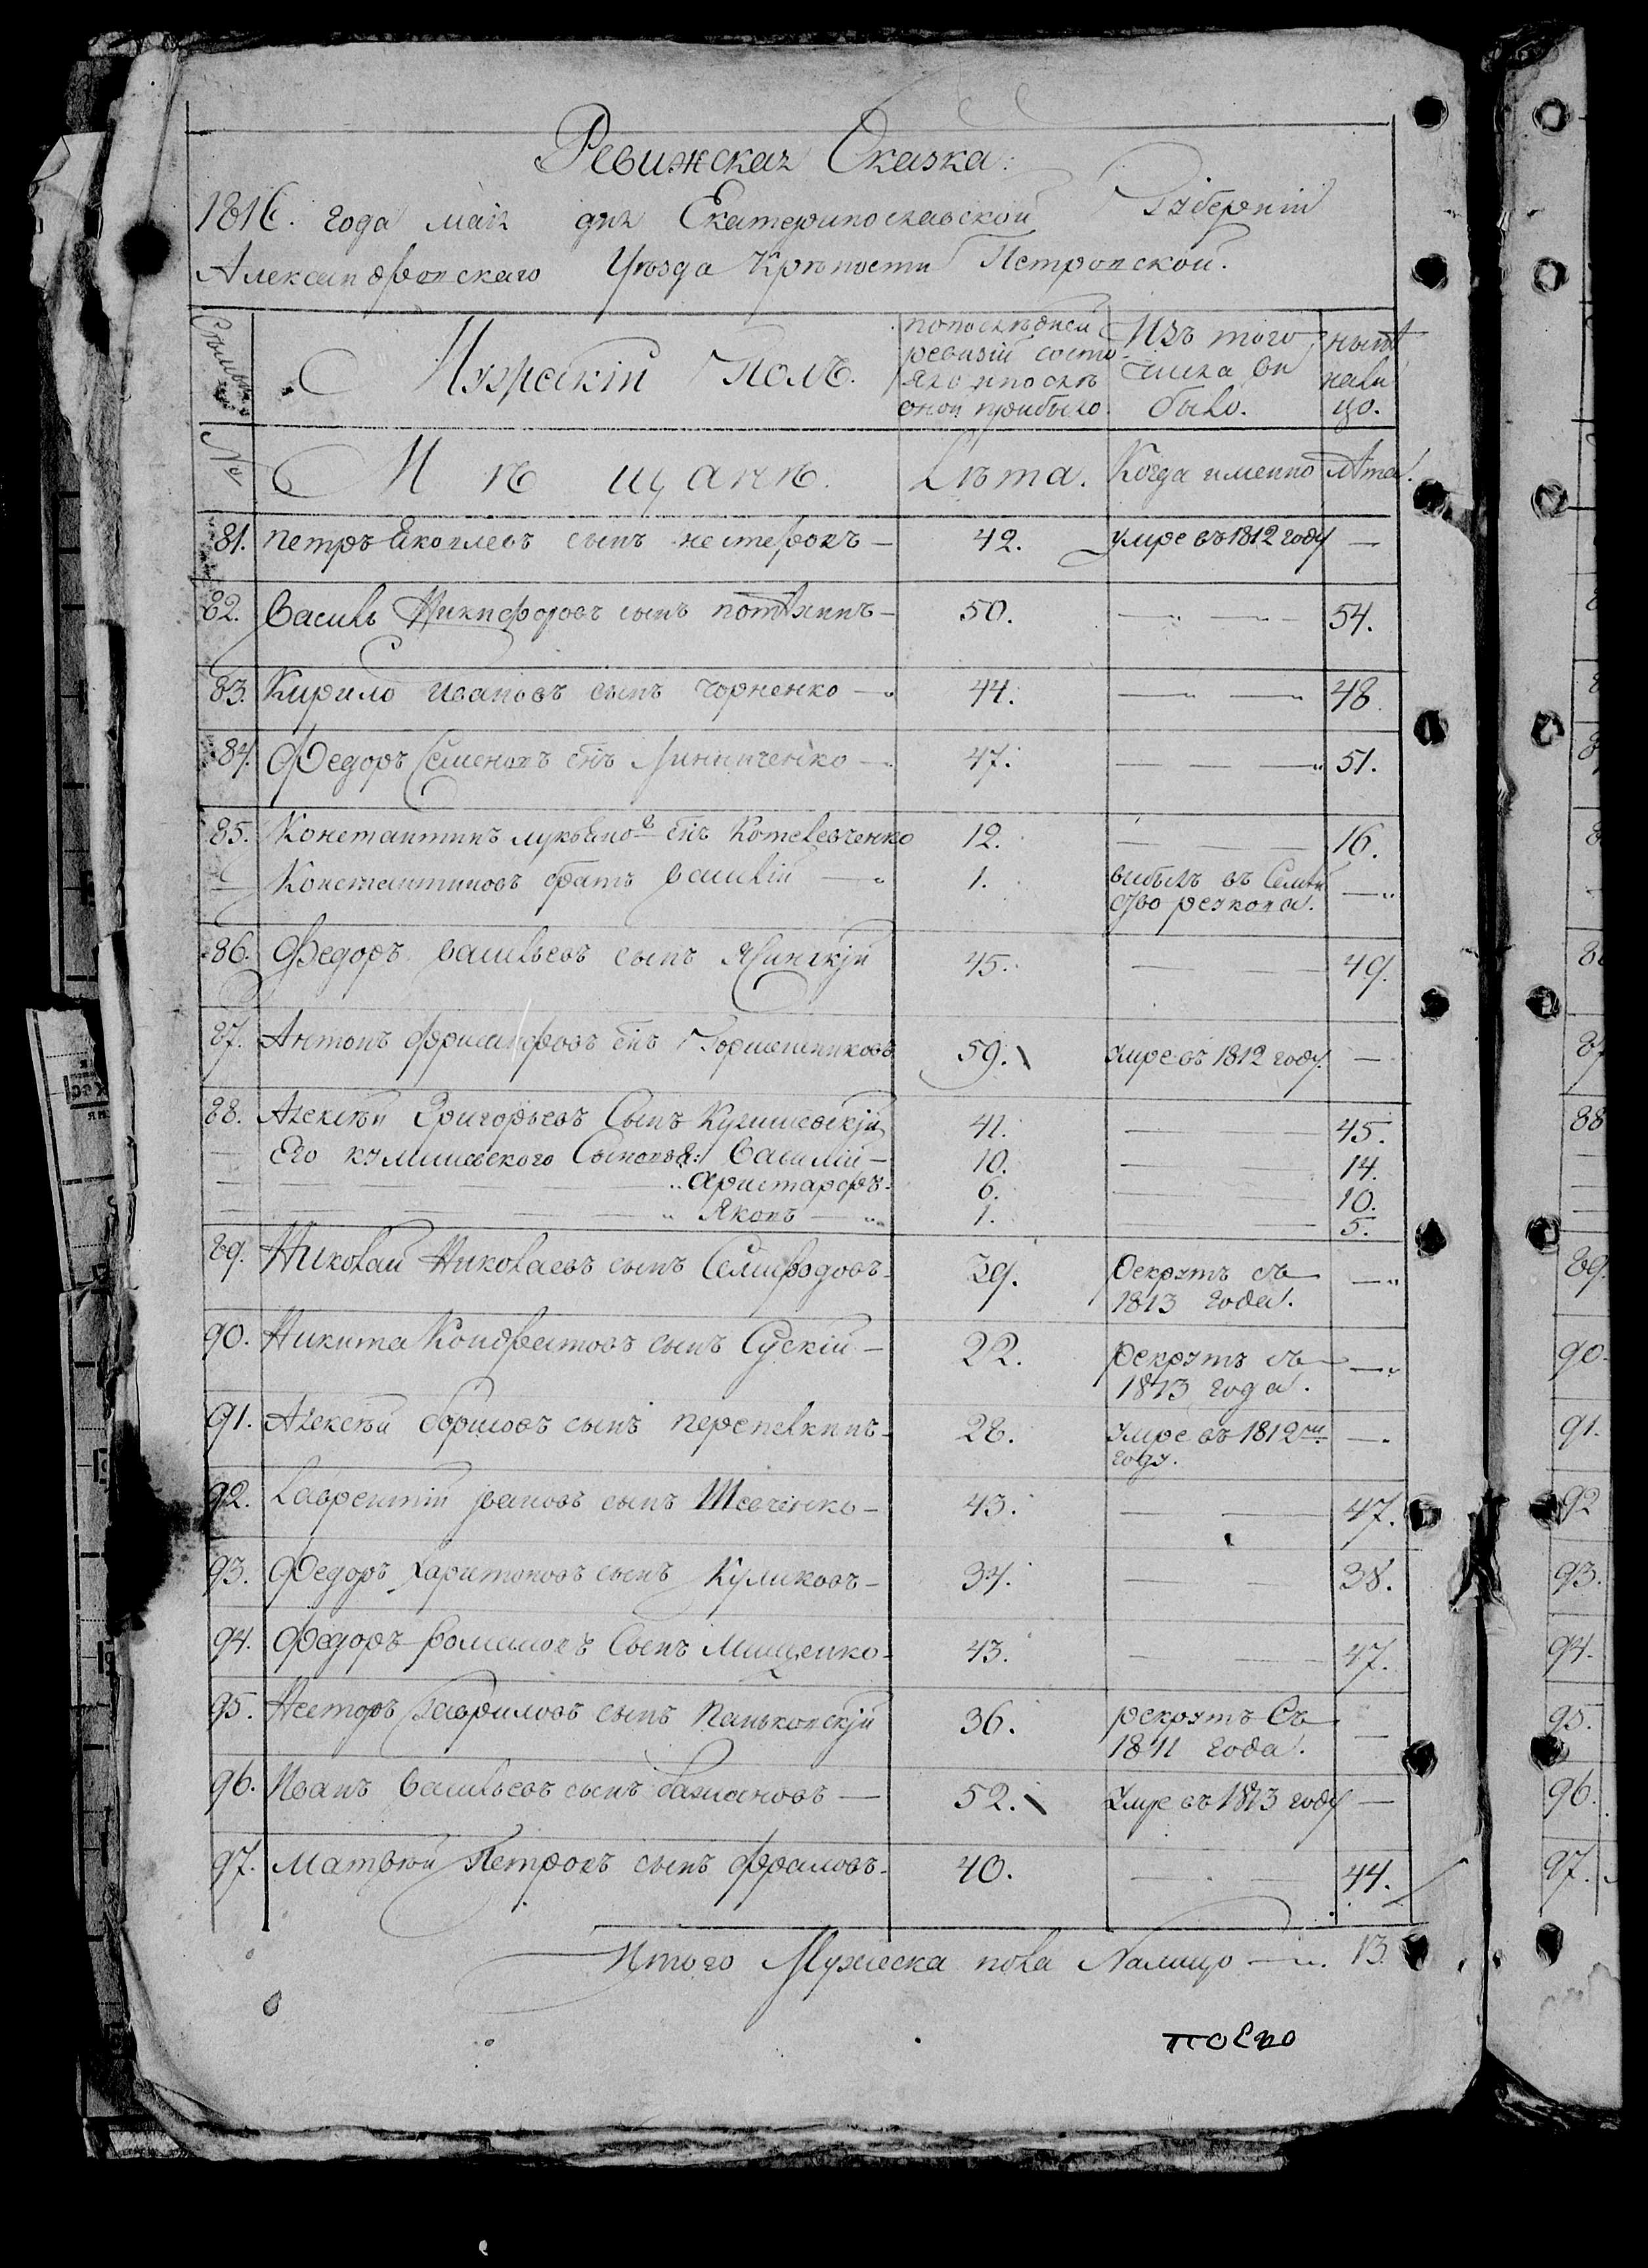 Ревижская Сказка:
1816. года мая дня Екатеринославской Губерніи
Александровскаго Уѣзда Крѣпости Петровской.
Семьи
Мужескій Полъ.
попослѣдней ревизіи состояло ипослѣ оной прибыло.
Изъ того числа выбыло.
нынѣ налицо.
№
Мѣщанѣ.
Лѣта.
Когда именно
лѣта.
81. петръ Яковлевъ сынъ нестеровъ — 42. умре въ 1812 году —
82. Василь Никифоровъ сынъ потѣхинъ — 50. — — 54.
83. Кирило Ивановъ сынъ чорненко — 44. — — 48.
84. Федоръ Семеновъ снъ Линниченко — 47. — — — 51.
85. Константинъ лукьянов снъ Котелевченко 12. — — 16.
Константиновъ братъ василій — 1. выбылъ въ —
86. Федоръ васильевъ сынъ 45. — — 49.
87. Антонъ снъ 59. умре въ 1812 году. —
88. Алексѣй Григорьевъ Сынъ 41. — 45.
— Его Сыновья: Василій — 10. — 14.
— — Аристархъ. 6. — 10.
— — — — — Яковъ — 1. — — 5.
89. Николай Николаевъ сынъ Селиврадовъ 39. рекрутъ съ 1813 года. —
90. Никита Кондратовъ сынъ Сускій — 22. рекрутъ съ 1813 года. —
91. Алексѣй борисовъ сынъ перепелкинъ — 28. умре въ 1812м году. —
92. Лаврентій ивановъ сынъ Шевченко — 43. — — 47.
93. Федоръ Харитоновъ сынъ Куликовъ — 34. — — 38.
94. Федоръ романовъ Сынъ Мищенко — 43. — — 47.
95. Несторъ Гавриловъ сынъ Паньковскій 36. рекрутъ Съ 1811 года. —
96. Иванъ Васильевъ сынъ бажановъ — 52. умре въ 1813 году —
97. Матвѣй Петровъ сынъ фроловъ — 40. — — 44.
Итого Мужеска пола Налицо — 13.